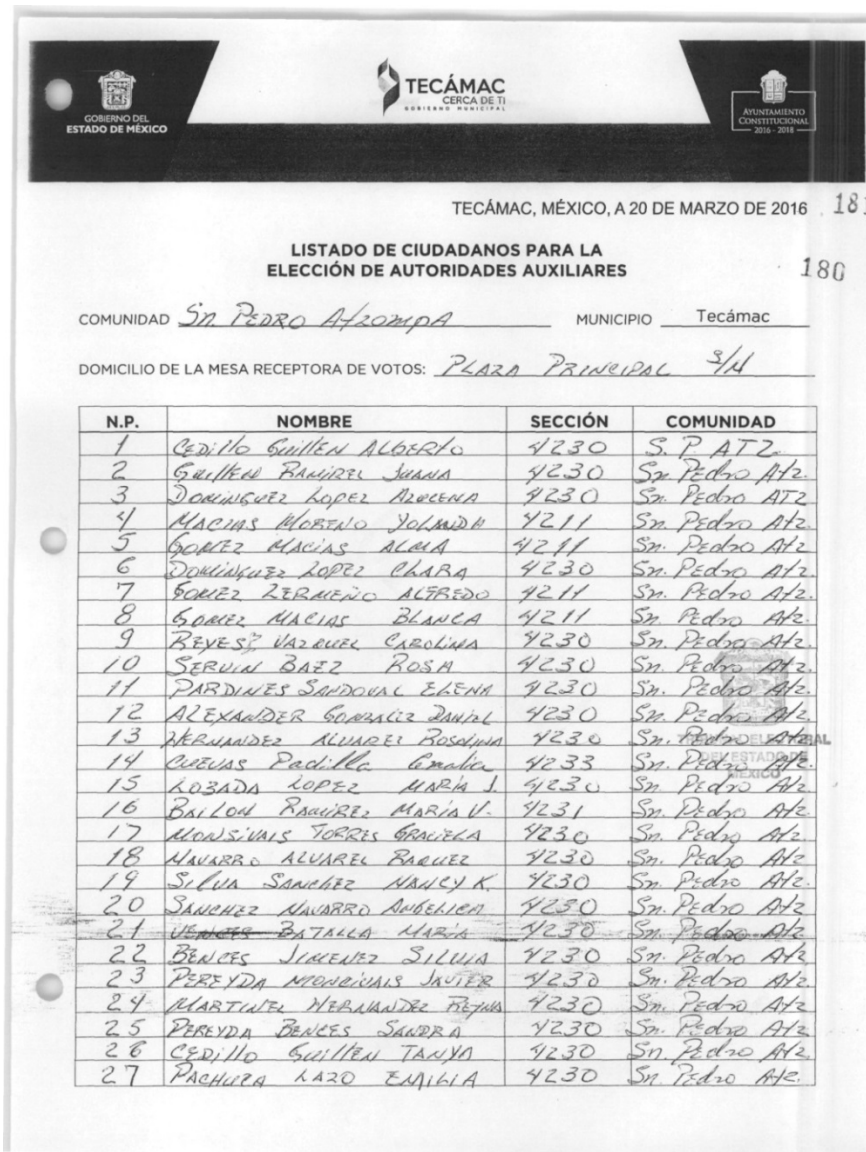 GOBIERNO DEL
ESTADO DE MÉXICO
TECÁMAC
CERCA DE TI
GOBIERNO MUNICIPAL
AYUNTAMIENTO
CONSTITUCIONAL
2016 - 2018
TECÁMAC, MÉXICO, A 20 DE MARZO DE 2016 181
LISTADO DE CIUDADANOS PARA LA
ELECCIÓN DE AUTORIDADES AUXILIARES
180
COMUNIDAD Sn. PEDRO AtzompA MUNICIPIO Tecámac
DOMICILIO DE LA MESA RECEPTORA DE VOTOS: PLAZA PRINCIPAL S/N
N.P. NOMBRE SECCIÓN COMUNIDAD
1 CEDillo GuillEN ALBERto 4230 S. P. ATZ.
2 GuillEN RAMIREZ JUANA 4230 Sn. Pedro Atz.
3 DOMINGUEZ LOPEZ AZUCENA 4230 Sn. Pedro ATZ
4 MACIAS MORENO YOLANDA 4211 Sn. Pedro Atz.
5 GOMEZ MACIAS ALMA 4211 Sn. Pedro Atz.
6 DOMINGUEZ LOPEZ CLARA 4230 Sn. Pedro Atz.
7 GOMEZ ZERMEÑO ALFREDO 4211 Sn. Pedro Atz.
8 GOMEZ MACIAS BLANCA 4211 Sn. Pedro Atz.
9 REYES VAZQUEZ CAROLINA 4230 Sn. Pedro Atz.
10 SERVIN BAEZ ROSA 4230 Sn. Pedro Atz.
11 PARDINES SANDOVAL ELENA 4230 Sn. Pedro Atz.
12 ALEXANDER GONZALEZ DANIEL 4230 Sn. Pedro Atz.
13 HERNANDEZ ALVAREZ ROSALINA 4230 Sn. Pedro Atz.
14 CUEVAS Padilla Amalia 4233 Sn. Pedro Atz.
15 LOZADA LOPEZ MARÍA J. 4230 Sn. Pedro Atz.
16 BAILON RAMIREZ MARÍA V. 4231 Sn. Pedro Atz.
17 MONSIVAIS TORRES GRACIELA 4230 Sn. Pedro Atz.
18 NAVARRO ALVAREZ RAQUEL 4230 Sn. Pedro Atz.
19 SILVA SANCHEZ NANCY K. 4230 Sn. Pedro Atz.
20 SANCHEZ NAVARRO ANGELICA 4230 Sn. Pedro Atz.
21 BATALLA MARÍA 4230 Sn. Pedro Atz
22 BENCES JIMENEZ SILVIA 4230 Sn. Pedro Atz.
23 PEREYDA MONCIVAIS JAVIER 4230 Sn. Pedro Atz.
24 MARTINEZ HERNANDEZ REYNA 4230 Sn. Pedro Atz.
25 PEREYDA BENCES SANDRA 4230 Sn. Pedro Atz.
26 CEDillo GuillEN TANYA 4230 Sn. Pedro Atz.
27 PACHUCA LAZO EMILIA 4230 Sn. Pedro Atz.
DEL ESTADO DE
MÉXICO